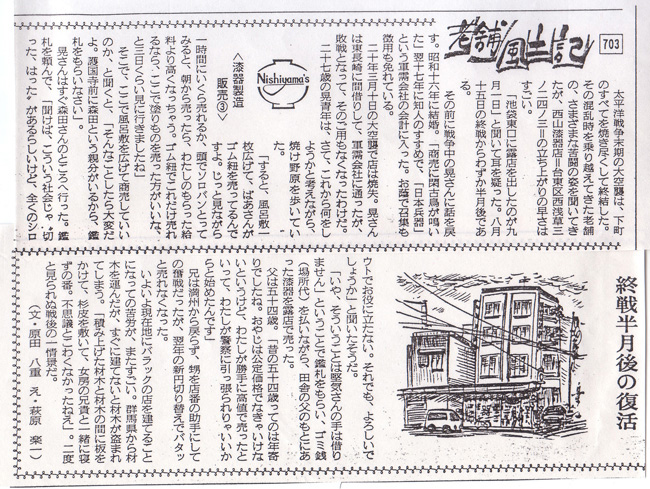 老舗風土記
703
太平洋戦争末期の大空襲は、下町
のすべてを焼き尽くして終結した。
その混乱時を乗り越えてきた老舗
の、さまざまな苦闘の姿を聞いてき
たが、西山漆器店＝台東区西浅草三
ノ二四ノ二＝の立ち上がりの早さは
すごい。
「池袋東口に露店を出したのが九
月一日」と聞いて耳を疑った。八月
十五日の終戦からわずか半月後であ
る。
その前に戦争中の晃さんに話を戻
す。昭和十六年に結婚。「商売に閑古鳥が鳴い
た」翌十七年に知人のすすめで、「日本兵器」
という軍需会社の会計に入った。お蔭で召集も
徴用も免れている。
二十年三月十日の大空襲で店は焼失。晃さん
は東長崎に間借りして、軍需会社に通ったが、
敗戦となって、そのご用もなくなったわけだ。
二十七歳の晃青年は、さて、これから何をし
ようかと考えながら、
焼け野原を歩いてい
Nishiyama's
＜漆器製造
販売③＞
「すると、風呂敷一
枚広げて、ばあさんが
ゴム紐を売ってるんで
すよ。じっと見ながら
一時間にいくら売れるか、頭でソロバンとって
みると、朝から売ったら、わたしのもらった給
料より高くなっちゃう。ゴム紐でこれだけ売れ
るなら、ここで塗りものを売った方がいいな、
と三日くらい見に行きましたね」
そこで、ここで風呂敷を広げて商売していい
のか、と聞くと、「そんなことしたら大変だ
よ。護国寺前に森田という親分がいるから、鑑
札をもらいなさい」。
晃さんはすぐ森田さんのところへ行った。鑑
札を頼んで、「聞けば、こういう社会じゃ〝切
った、はった〟があるらしいけど、全くのシロ
終戦半月後の復活
ウトでお役に立たない。それでも、よろしいで
しょうか」と聞いたそうだ。
「いや、そういうことは堅気さんの手は借り
ません」ということで鑑札をもらい、ゴミ銭
（場所代）を払いながら、田舎の父のもとにあ
った漆器を露店で売った。
父は五十四歳。「昔の五十四歳ってのは年寄
りでしたね。おやじは公定価格でなきゃいけな
いというけど、わたしが勝手に高値で売ったと
いって、わたしが警察に引っ張られりゃいいか
らと始めたんです」
兄は満州から戻らず、甥を店番の助手にして
の奮戦だったが、翌年の新円切り替えでパタッ
と売れなくなった。
いよいよ現在地にバラックの店を建てること
になっての苦労が、またすごい。群馬県から材
木を運んだが、すぐに建てないと材木が盗まれ
てしまう。「積み上げた材木と材木の間に板を
かけて、杉皮を敷いて、女房の兄貴と一緒に寝
ずの番。不思議とこわくなかったねえ」。二度
と見られぬ戦後の一情景だ。
（文・原田 八重 え・萩原 楽一）